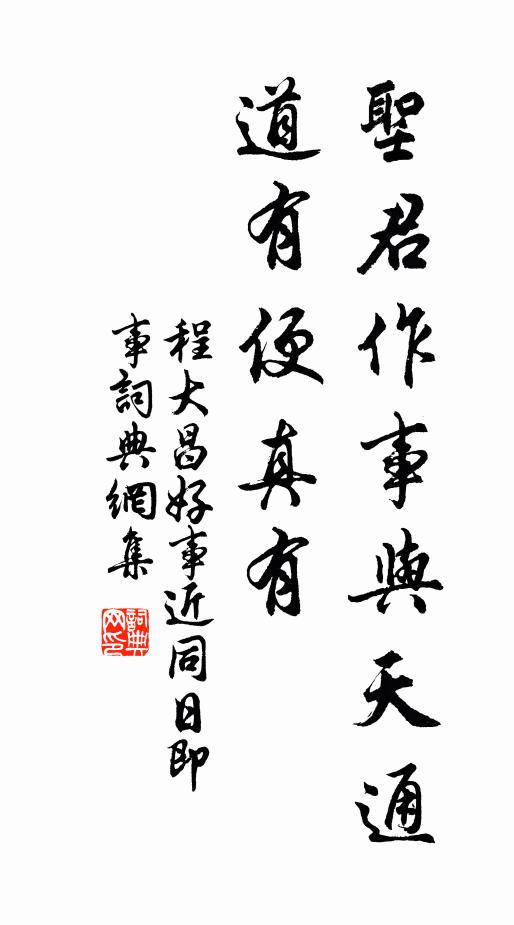 聖君作事與天通
道有便真有
程大昌好事近同日即
事詞典網集
詞典網印